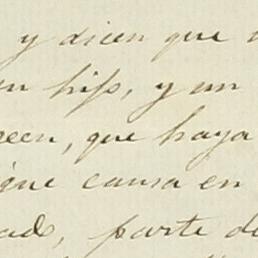 y dicen que
un hijo, y un
creen, que haya
que causa en
ado, parte de